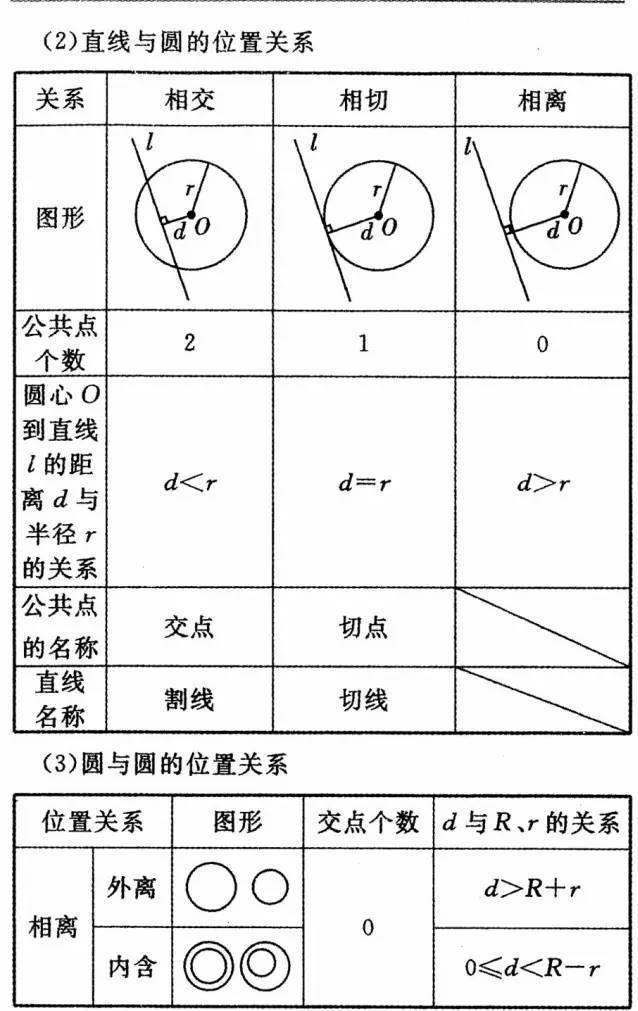 (2)直线与圆的位置关系
关系 相交 相切 相离
图形
l r d O
l r d O
l r d O
公共点
个数
2 1 0
圆心O
到直线
l的距
离d与
半径r
的关系
d<r d=r d>r
公共点
的名称
交点 切点
直线
名称
割线 切线
(3)圆与圆的位置关系
位置关系 图形 交点个数 d与R、r的关系
相离
外离
0
d>R+r
内含
0≤d<R-r